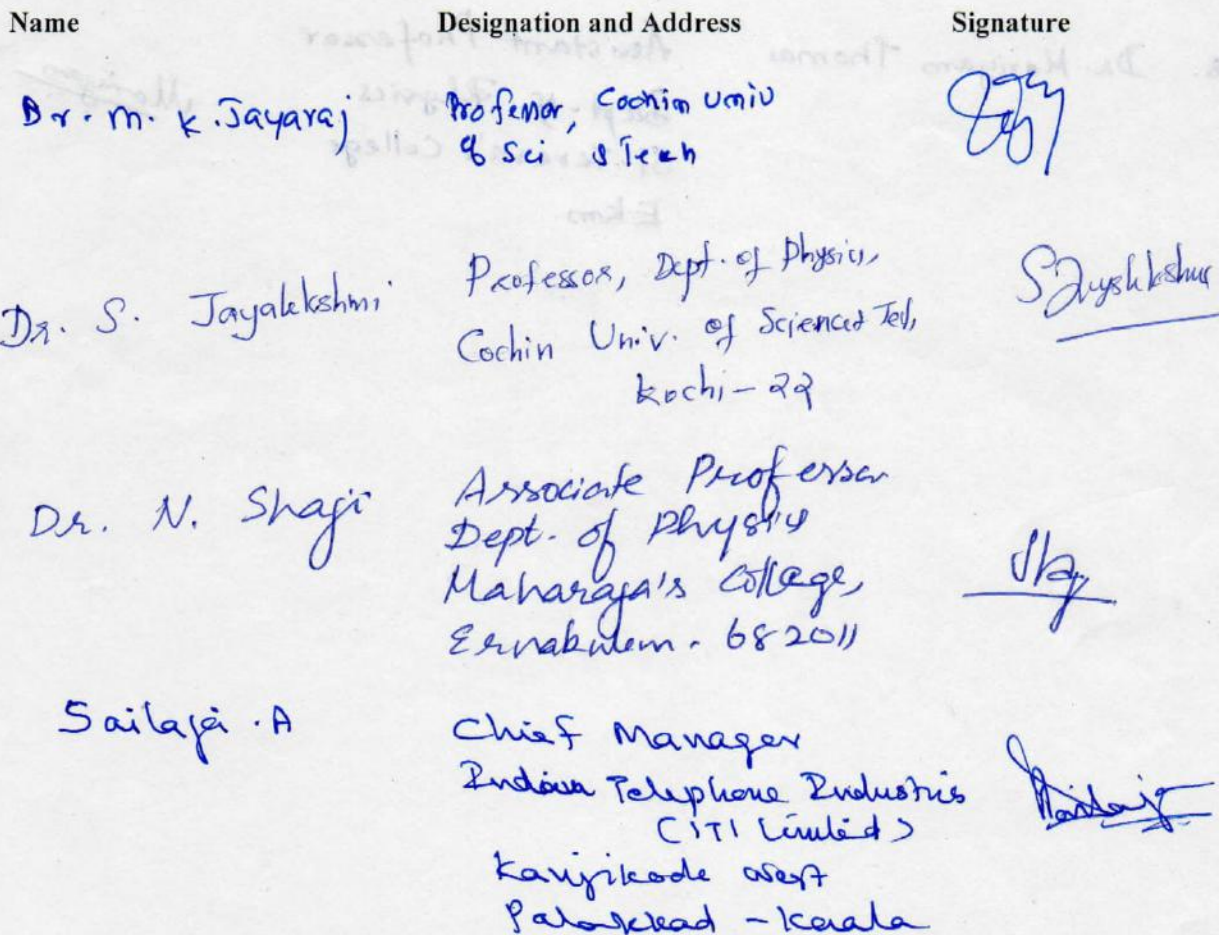 Name Designation and Address Signature
Dr. M. K. Jayaraj Professor, Cochin Univ
of Sci & Tech
Dr. S. Jayalekshmi Professor, Dept. of Physics,
Cochin Univ. of Science & Tech,
Kochi - 22
Dr. N. Shaji Associate Professor
Dept. of Physics
Maharaja's College,
Ernakulam - 682011
Sailaja . A Chief Manager
Indian Telephone Industries
(ITI Limited)
Kanjikode West
Palakkad - Kerala